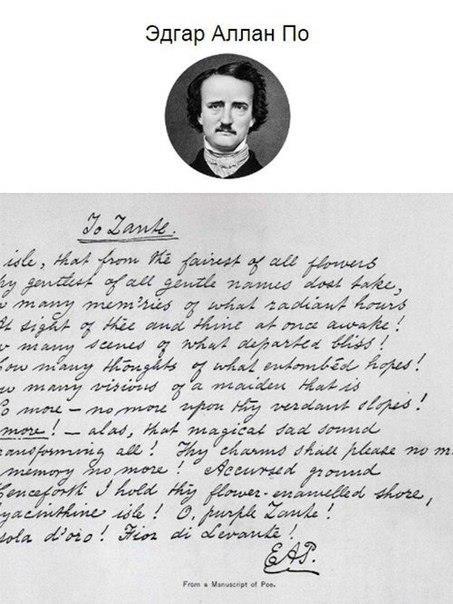 Эдгар Аллан По
To Zante.
isle, that from the fairest of all flowers
hy gentlest of all gentle names dost take,
w many mem'ries of what radiant hours
At sight of thee and thine at once awake!
w many scenes of what departed bliss!
How many thoughts of what entombéd hopes!
ow many visions of a maiden that is
No more – no more upon thy verdant slopes!
more! – alas, that magical sad sound
ransforming all! Thy charms shall please no m
memory no more! Accursed ground
Henceforth I hold thy flower-enamelled shore,
yacinthine isle! O, purple Zante!
sola d'oro! Fior di Levante!
EAP.
From a Manuscript of Poe.